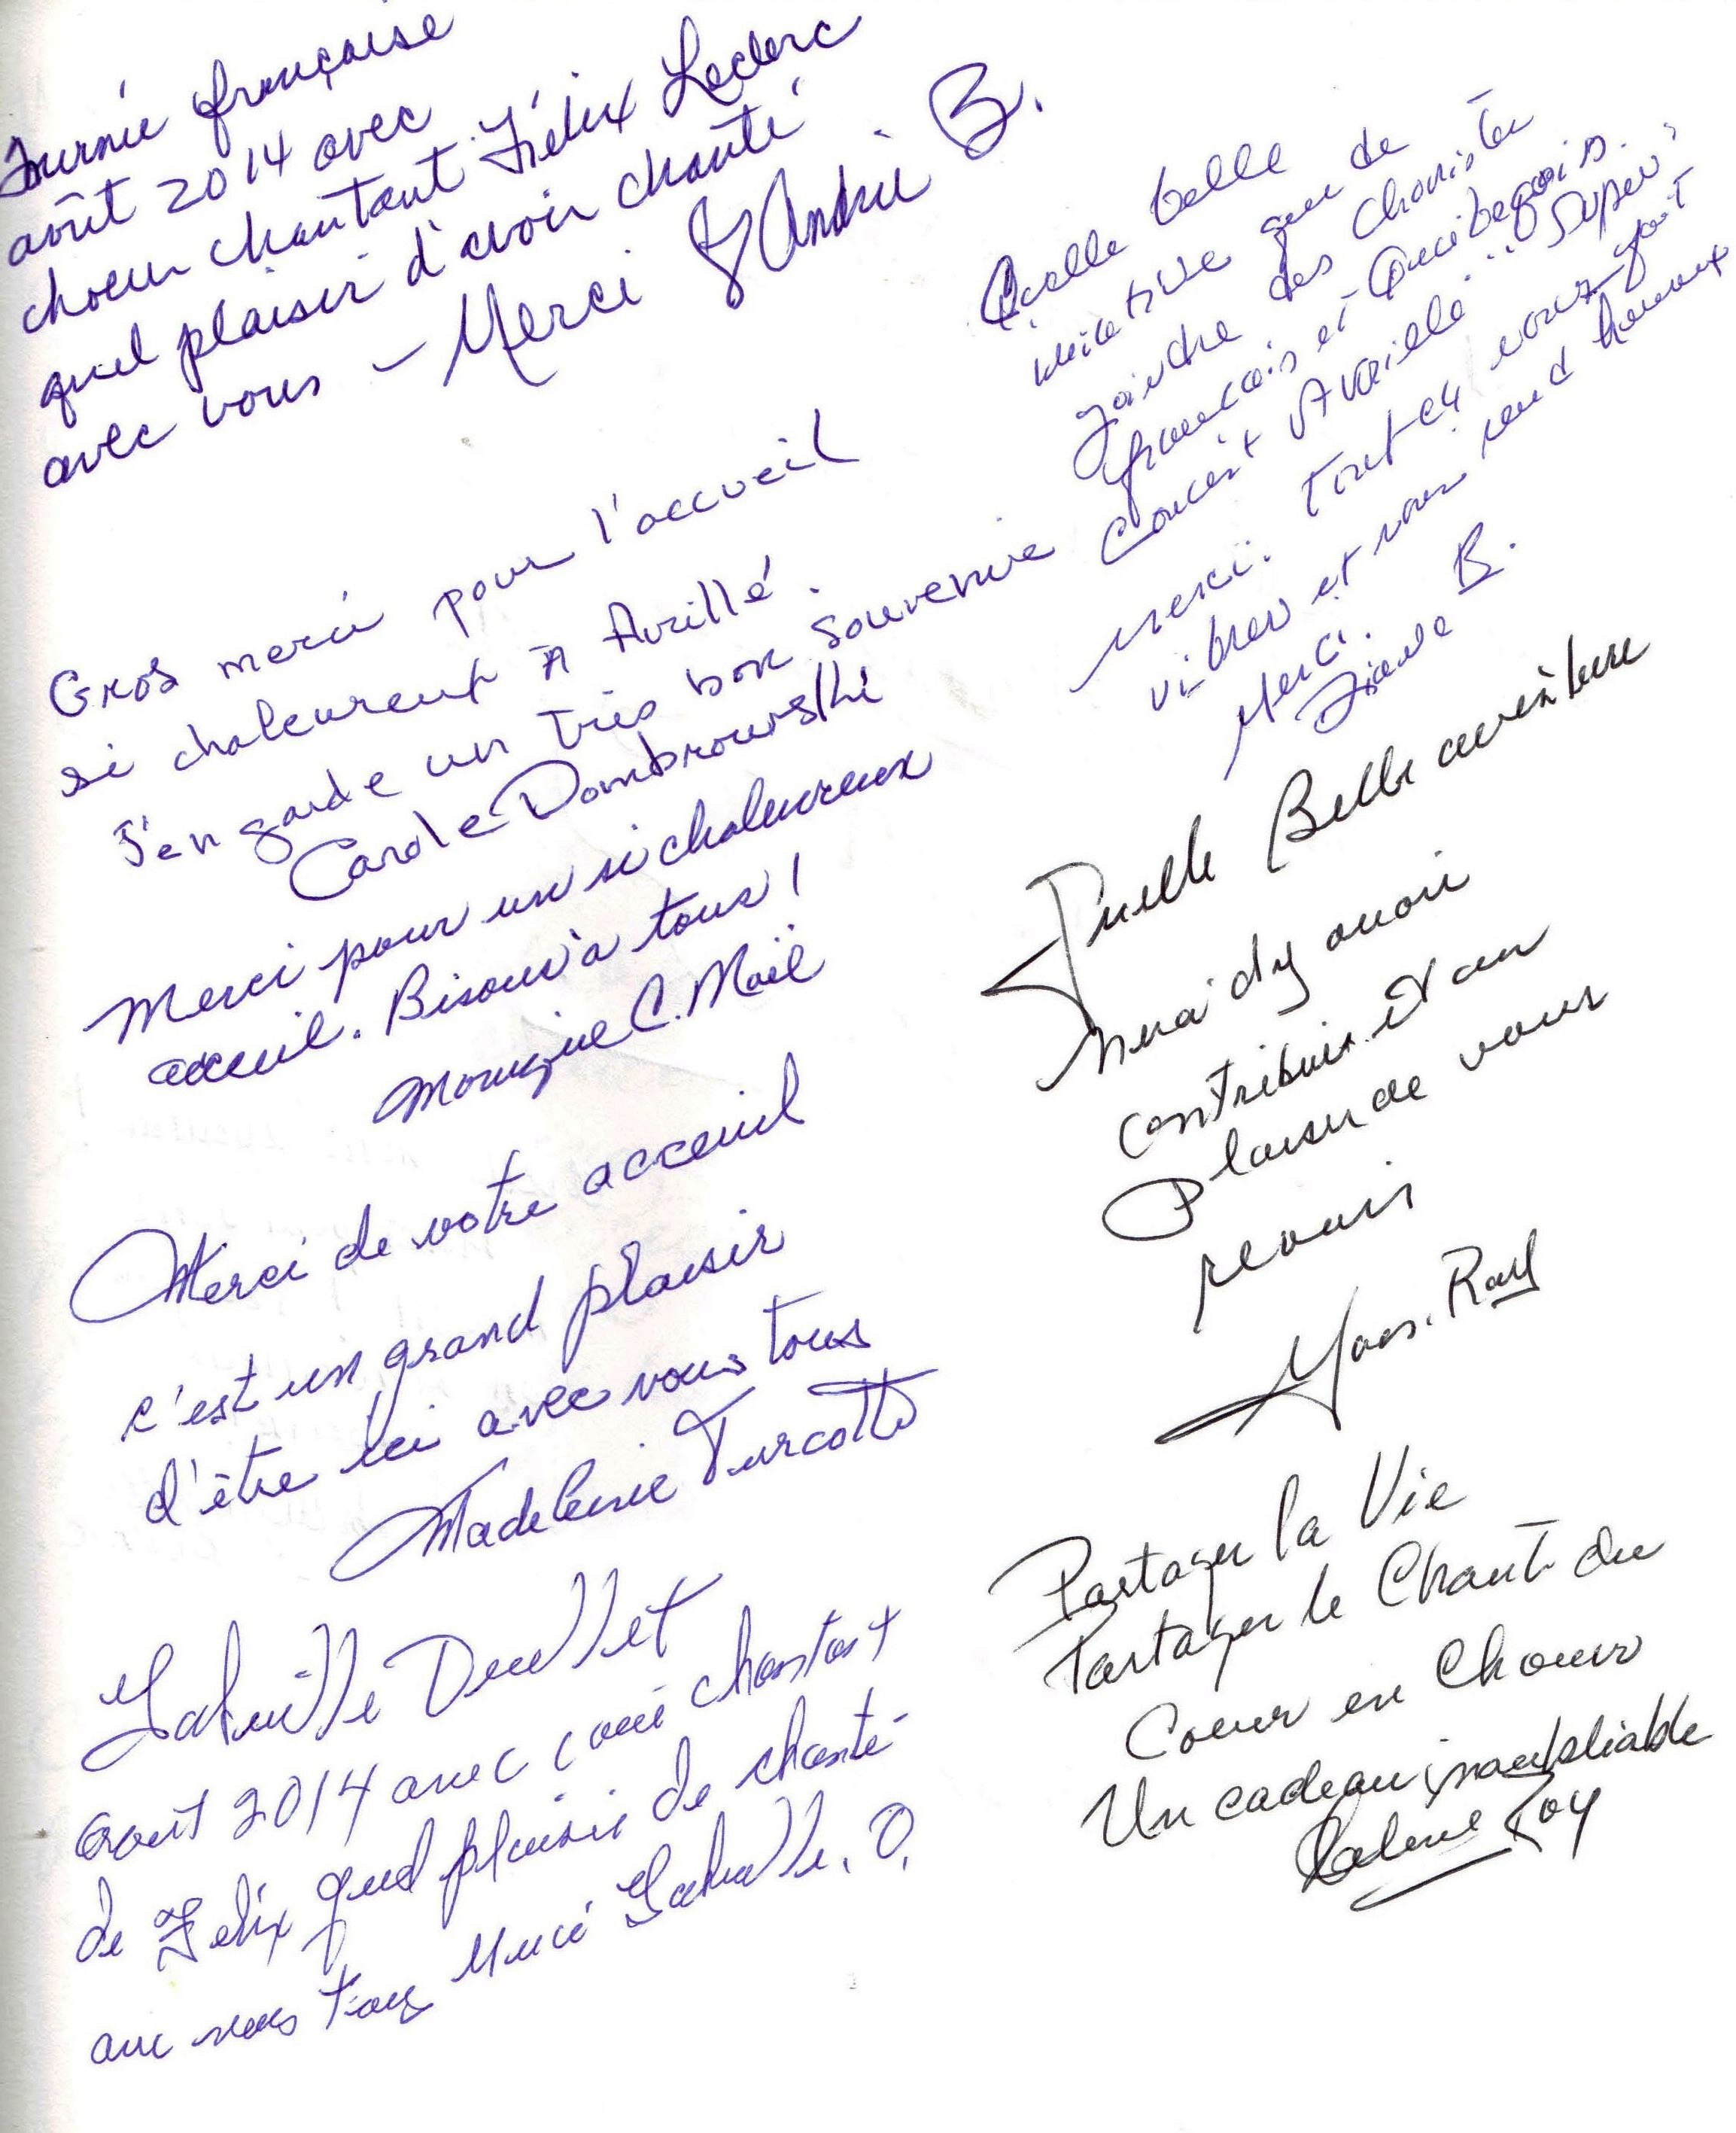 Tournée française
août 2014 avec
choeur chantant Félix Leclerc
quel plaisir d'avoir chanté
avec vous - Merci André B.
Gros merci pour l'accueil
si chaleureux à Avrillé.
J'en garde un très bon souvenir
Carole Dombrowski
Merci pour un si chaleureux
acceuil. Bisous à tous!
Monique C. Maël
Merci de votre acceuil
c'est un grand plaisir
d'être ici avec vous tous
Madeleine Turcotte
Août 2014 avec chantant
de Félix quel plaisir de chanté
avec vous tous Merci
Quelle belle
initiative que de
joindre des choristes
français et Québequois.
Concert Avrillé... Super,
merci. Tout ça nous fait
vibrer et nous rend heureux
Merci.
Diane B.
Quelle Belle aventure
Merci d'y avoir
contribuer. Et au
Plaisir de vous
revoir
Partager la Vie
Partager le Chant du
Coeur en Choeur
Un cadeau inoubliable
Roy